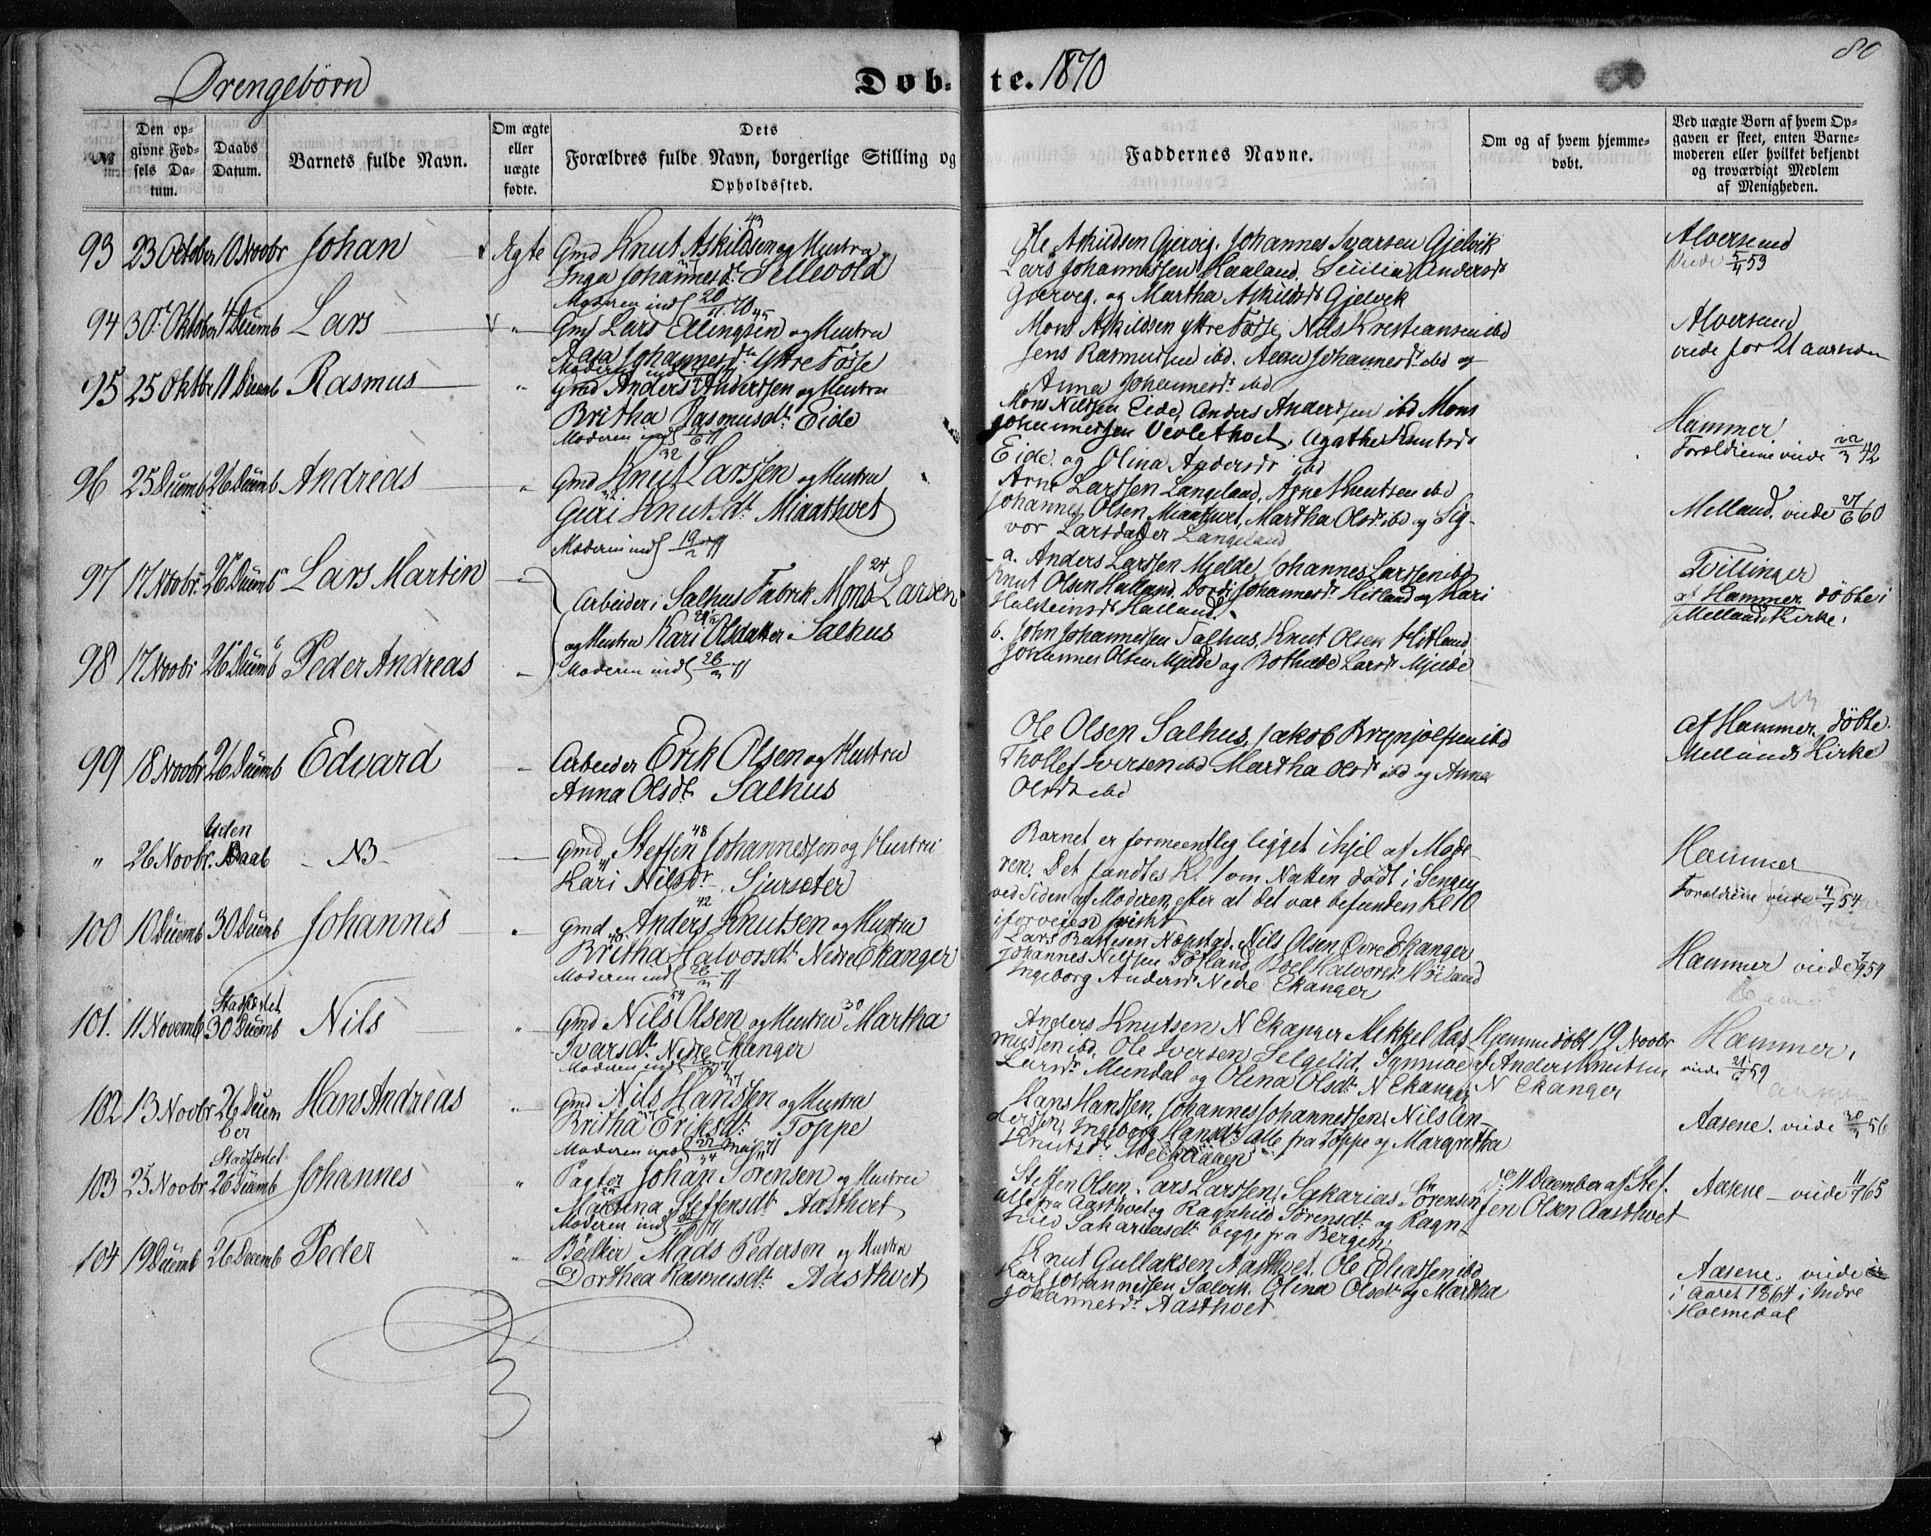 80
Drengebørn
Døb-
te. 1870
№
Den op-
givne Fød-
sels Da-
tum.
Daabs
Datum.
Barnets fulde Navn.
Om ægte
eller
uægte
fødte.
Dets
Forældres fulde Navn, borgerlige Stilling og
Opholdssted.
Faddernes Navne.
Om og af hvem hjemme-
døbt.
Ved uægte Børn af hvem Op-
gaven er skeet, enten Barne-
moderen eller hvilket bekjendt
og troværdigt Medlem
af Menigheden.
93 23 October 10 Novbr Johan Ægte Gmd Knut Askildsen og Hustru
Inga Johannesdr Sellevold
Ole Askildsen Gjervig, Johannes Ivarsen Gjelvik
Lars Johannessen Haaland, Secilia Andersdr
Gjervig, og Martha Askildsdr Gjelvik
Alversund
94 30 Oktober Lars Gmd Lars Ellingsen og Hustru
Johannesdr Ytre Fosse
Mons Askildsen ytre Fosse, Nils Kristiansen ibd
Jens Rasmussen ibd. Johannesdr ibd og
Anna Johannesdr ibd
Alversund
viede for 21 aar siden
95 25 Oktbr 11 Decemb Rasmus Gmd Anders Andersen og Hustru
Britha Rasmusdr Eide
Mons Nilsen Eide, Anders Andersen ibd Mons
Johannessen Agatha Knutsdr
Eide og Olina Andersdr ibd
Hammer
Forældrene viede 42
96 25 Decemb 26 Decemb Andreas Gmd Knut Larssen og Hustru
Guri Knutsdr Miaathvet
Moderen indl 19/2 71
Arne Larssen Langeland, Arne Knutsen ibd
Johannes Olsen Miaathvet, Martha Olsdr ibd og Sig-
vor Larsdatter Langeland
Melland. viede 60
97 17 Novbr 26 Decemb Lars Martin
Arbeider i Salhus Fabrik Mons Larsen
og Hustru Kari Olsdatter Salhus
a. Anders Larssen Mjelde, Johannes Larssen ibd
Knut Olsen Hatland, Johannesdr Hitland og Kari
Halsteinsdr Hatland.
Tvillinger
af Hammer, døbte i
Mellands Kirke.
98 17 Novbr 26 Decemb Peder Andreas
Moderen indl 26/3 71
b. John Johannessen Salhus, Knut Olsen Hitland
Johannes Olsen Mjelde og Larsdr Mjelde
99 18 Novbr 26 Decemb Edvard
Arbeider Erik Olsen og Hustru
Anna Olsdr Salhus
Ole Olsen Salhus, Jakob Brynjolfsen ibd
Thollef Iversen ibd Martha Olsdr ibd og Anna
Olsdr ibd
af Hammer, døbte
Mellands Kirke
" 26 Novbr. Uden
Daab - NB -
Gmd Steffen Johannessen og Hustru
Kari Nilsdr. Sjursæter
Barnet er formeentlig ligget ihjel af Mode-
ren. Det fandtes Kl. 1 om Natten dødt i Sengen
ved Siden af Moderen, efter at det var befunden Kl 10
iforveien friskt
Hammer
Forældrene viede 54
100 10 Decemb 30 Decemb Johannes
Gmd Anders Knutsen og Hustru
Britha Halvorsdr Nedre Ekanger
Lars Næpstad, Nils Olsen Øvre Ekanger
Johannes Nilssen Totland, Boel Halvorsdr Höiland
Ingeborg Andersdr Nedre Ekanger
Hammer viede 54
101. 11 Novemb Stadfæstet
30 Decemb Nils
Gmd Nils Olsen og Hustru Martha
Ivarsdr. Nedre Ekanger
Anders Knutsen N Ekanger Mikkel Ras-
mussen ibd. Ole Iversen Selgelid,
Larsdr Mundal og Olina Olsdr N Ekanger
Hjemmedøbt 19 Novbr
af Anders Knutsen
N Ekanger
Hammer.
viede 59
102 13 Novbr 26 Decem
ber Hans Andreas
Gmd Nils Hanssen og Hustru
Britha Eriksdr. Toppe
Hans Hanssen, Johannes Johannessen, Nils An-
derssen, Ingeborg Hansdr alle fra Toppe og Margretha
Knutsdr
Aasene. viede 56
103 25 Novbr Stadfæstet
26 Decemb Johannes
Pagter Johan Sørensen og Hustru
Martina Steffensdr Aasthvet
Steffen Olsen, Lars Larssen, Sakarias Sørensen
alle fra Aasthvet og Ragnhild Sørensdr og Ragn-
hild Sakariasdr begge fra Bergen.
11 December af Stef-
fen Olsen Aasthvet
Aasene - viede 65
104 19 Decemb 26 Decemb Peder
Bødker Mads Pedersen og Hustru
Dorthea Rasmusdr Aasthvet
Knut Gullaksen Aasthvet, Ole Eliassen ibd
Lars Johannessen Sælvik, Olina Olsdr og Martha
Johannesdr Aasthvet
Aasene. viede
i Aaret 1864 i Indre
Holmedal